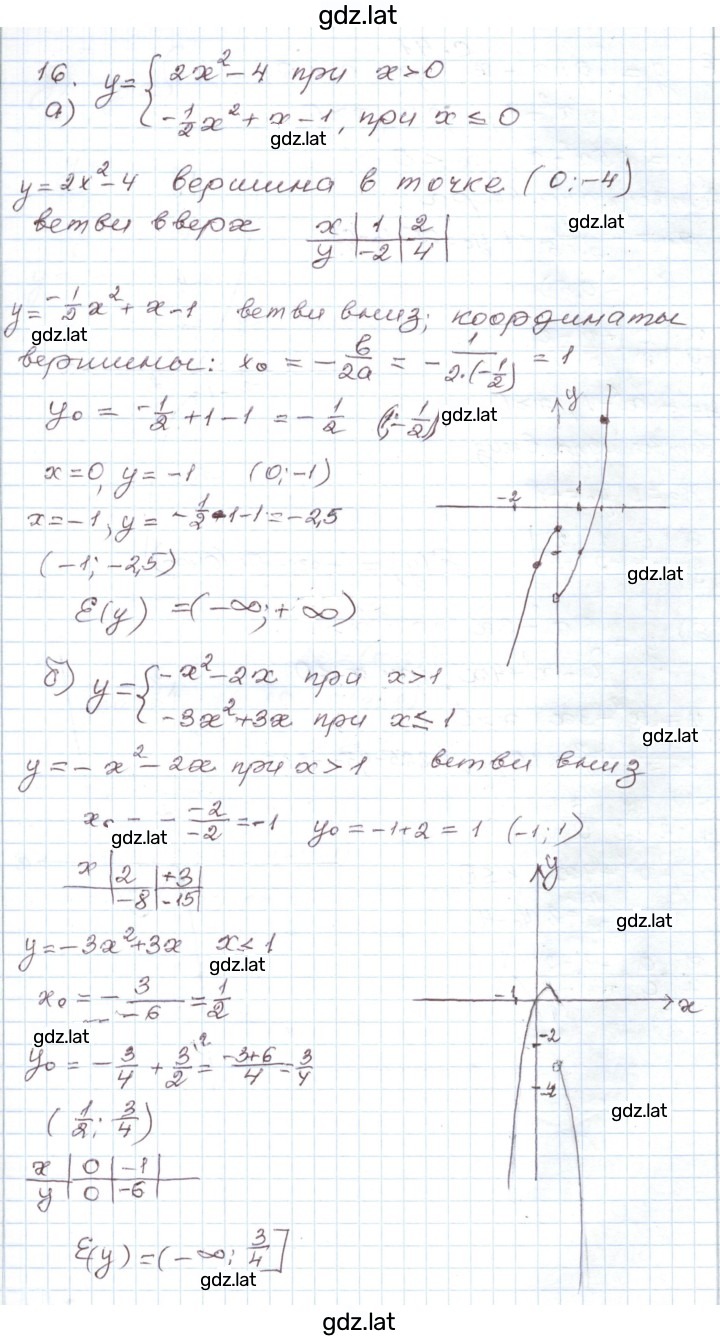 gdz.lat
16. y = { 2x² - 4 при x > 0
а) { -1/2 x² + x - 1, при x ≤ 0
gdz.lat
y = 2x² - 4 вершина в точке (0; -4)
ветви вверх x | 1 | 2 | gdz.lat
y | -2 | 4 |
y = -1/2 x² + x - 1 ветви вниз; координаты
gdz.lat
вершины: x₀ = - b/2a = - 1/(2·(-1/2)) = 1
y₀ = -1/2 + 1 - 1 = -1/2 (1; -1/2) gdz.lat
y
x = 0, y = -1 (0; -1)
-2 1
x = -1, y = -1/2 - 1 - 1 = -2,5
(-1; -2,5)
gdz.lat
E(y) = (-∞; +∞)
б) y = { -x² - 2x при x > 1
{ -3x² + 3x при x ≤ 1
gdz.lat
y = -x² - 2x при x > 1 ветви вниз
x₀ = - -2/-2 = -1 y₀ = -1 + 2 = 1 (-1; 1)
gdz.lat
y
x | 2 | +3 |
| -8 | -15 |
gdz.lat
y = -3x² + 3x x ≤ 1
gdz.lat
x₀ = - 3/-6 = 1/2
-1 x
gdz.lat
-2
y₀ = -3/4 + 3/2 = (-3+6)/4 = 3/4
-4
gdz.lat
(1/2; 3/4)
x | 0 | -1 |
y | 0 | -6 |
E(y) = (-∞; 3/4]
gdz.lat
gdz.lat